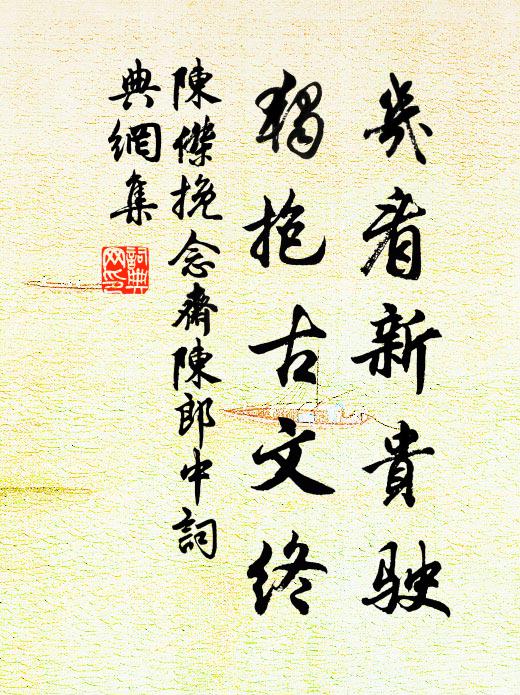 幾看新貴駛
獨抱古文終
陳傑挽念齋陳郎中詞
典網集
詞典网印